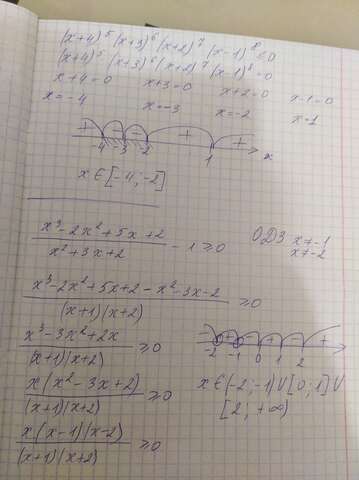 (x+4)⁵(x+3)⁶(x+2)⁷(x-1)⁸≤0
(x+4)⁵(x+3)⁶(x+2)⁷(x-1)⁸=0
x+4=0 x+3=0 x+2=0 x-1=0
x=-4 x=-3 x=-2 x=1
+ - - + +
-4 -3 -2 1 x
x∈[-4;-2]
(x³-2x²+5x+2)/(x²+3x+2) - 1≥0 ОДЗ x≠-1
x≠-2
(x³-2x²+5x+2-x²-3x-2)/((x+1)(x+2)) ≥0
(x³-3x²+2x)/((x+1)(x+2)) ≥0
- + - + - +
-2 -1 0 1 2
(x(x²-3x+2))/((x+1)(x+2)) ≥0
x∈(-2;-1)∪[0;1]∪
[2;+∞)
(x(x-1)(x-2))/((x+1)(x+2)) ≥0